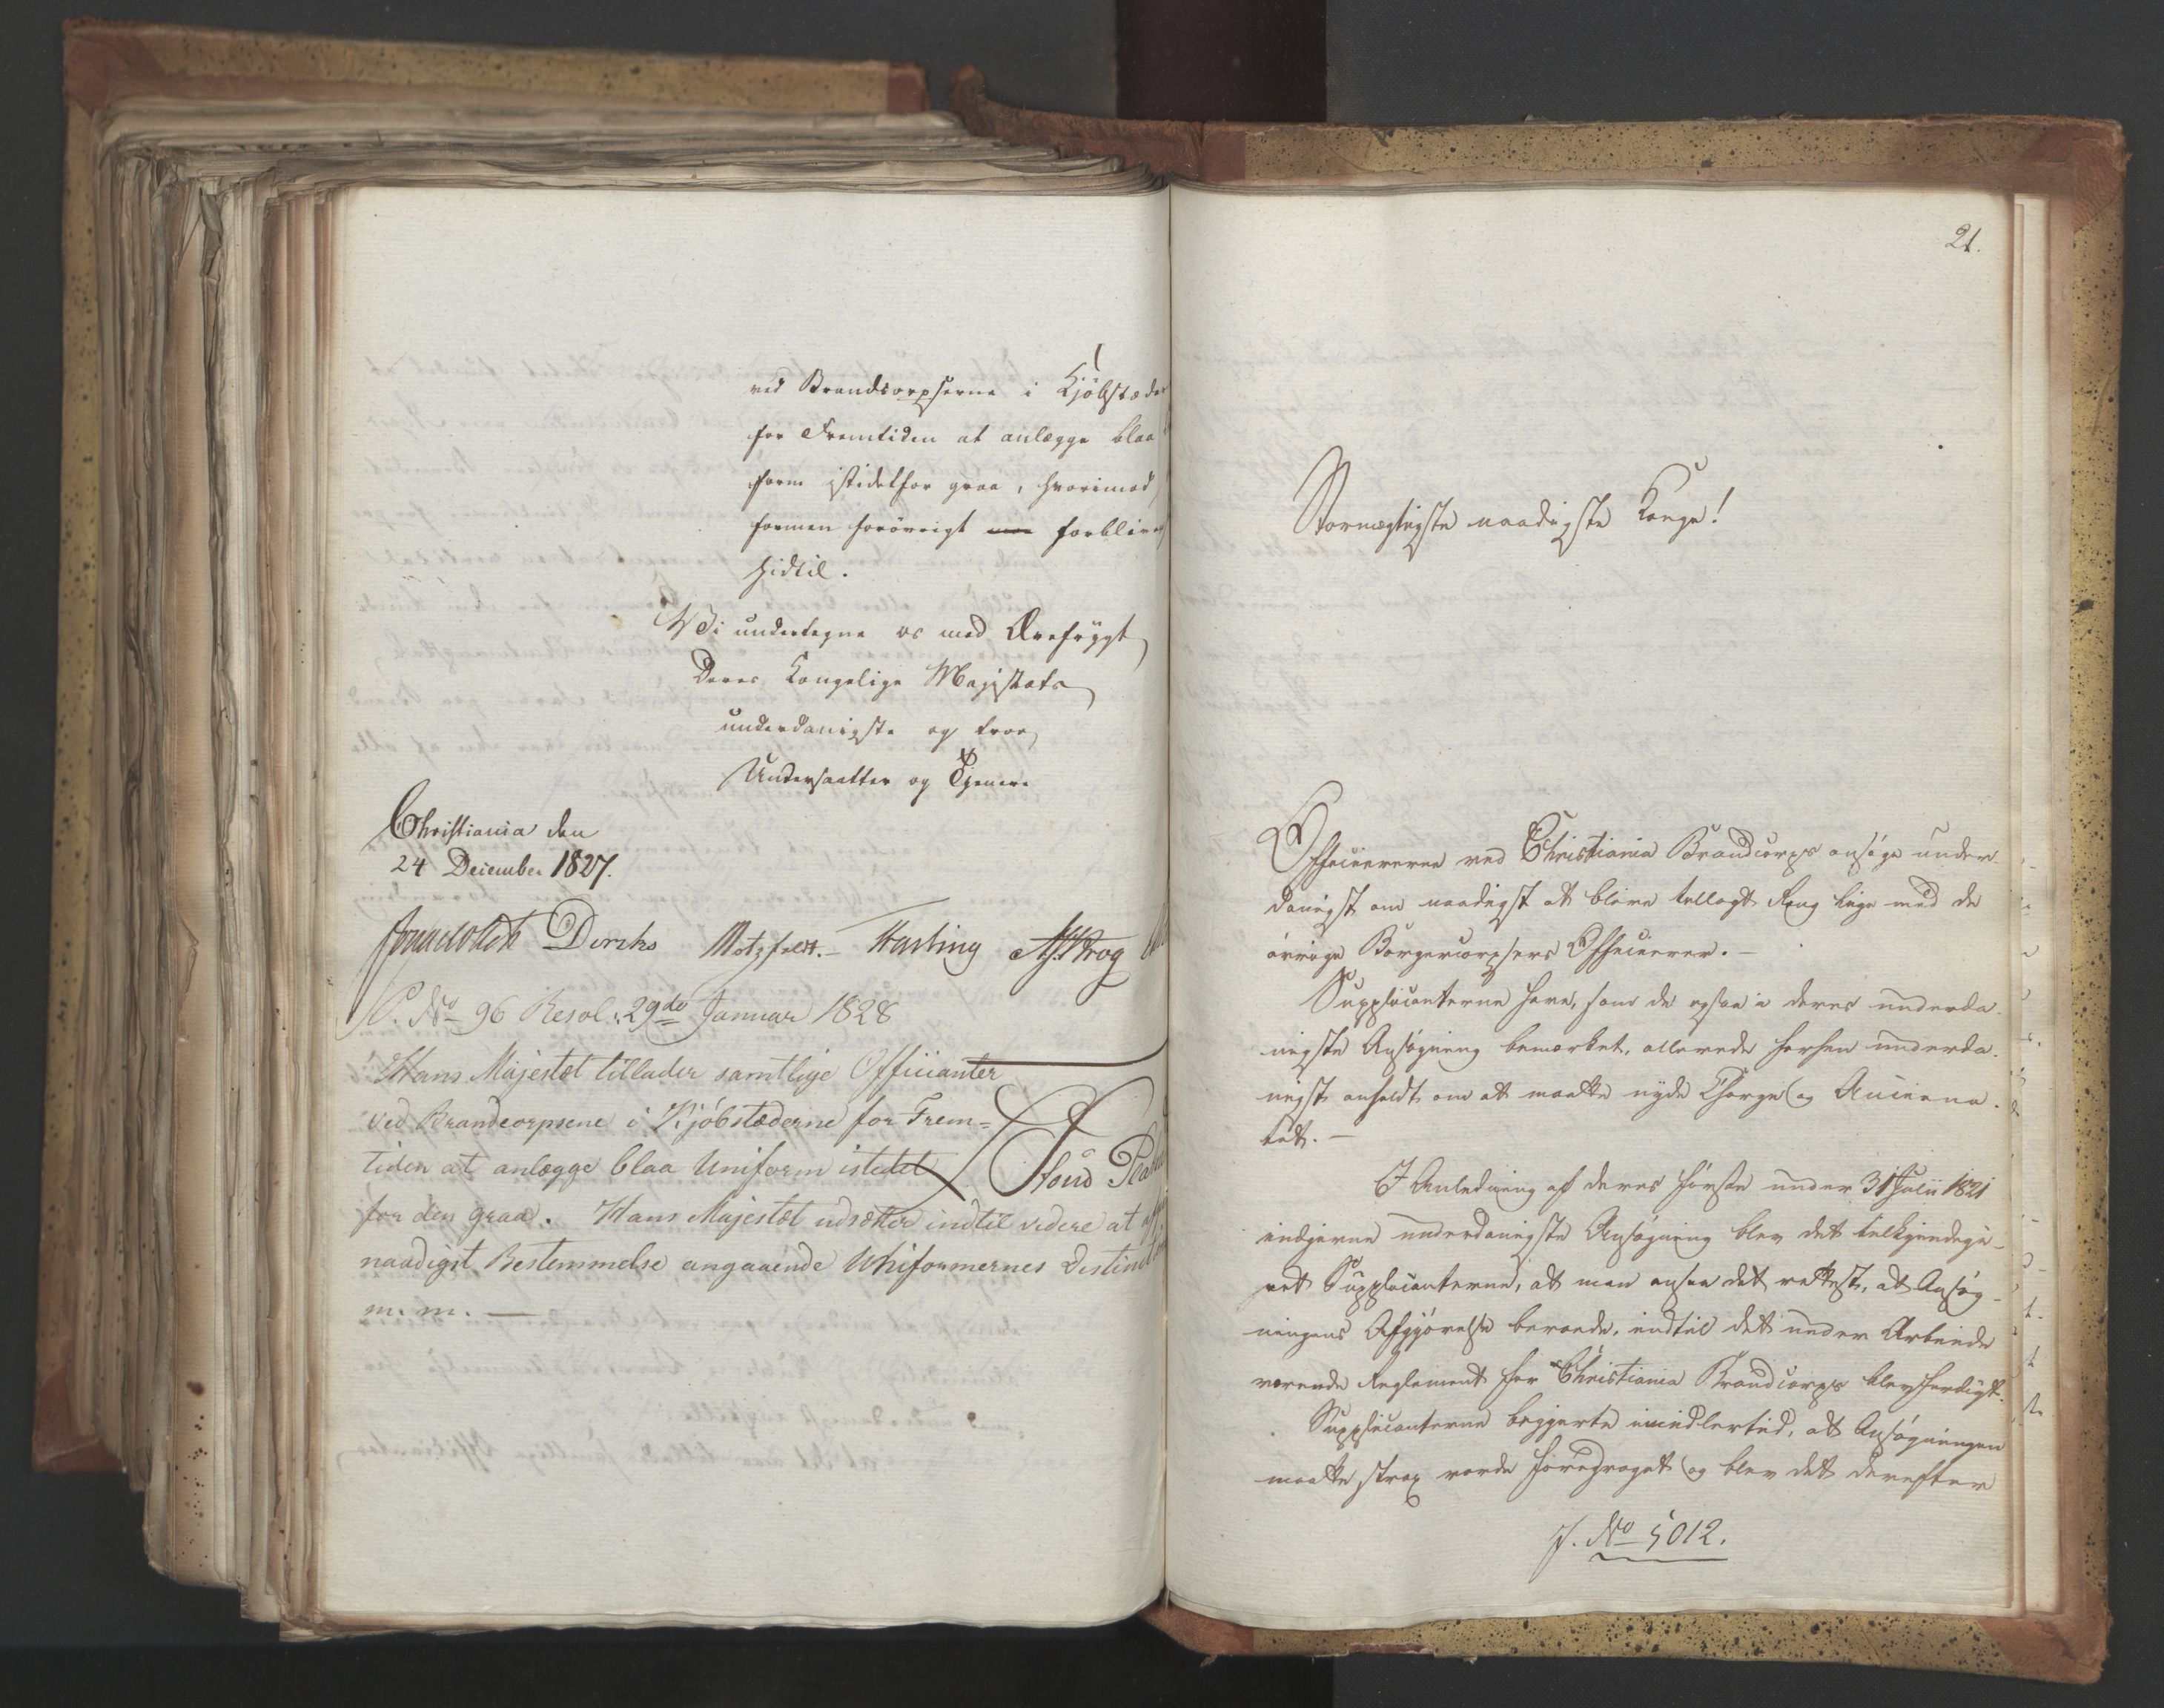 ved Brandcorpserne i Kjöbstæder
for Fremtiden at anlægge blaa
form istedetfor graa, hvorimod
formen forövrigt forbliver
hidtil.
Vi undertegne os med Ærefrygt
Deres Kongelige Majestæts
underdanigste og troe
Undersaatter og Tjenere
Christiania den
24 December 1827.
Diriks Motzfeldt. Hasting Krog
P. No 96 Resol. 29de Januar 1828
Hans Majestæt tillader samtlige Officianter
ved Brandcorpsene i Kjöbstæderne for Frem=
tiden at anlægge blaa Uniform istedet
for den graa. Hans Majestæt udsætter indtil videre at
naadigst Bestemmelse angaaende Uniformernes
m. m. —
21.
Stormægtigste naadigste Konge!
Officiererne ved Christiania Brandcorps ansöge under-
danigst om naadigst at blive tillagt Rang lige med de
övrige Borgercorpsers Officierer. —
Supplicanterne have, som de ogsaa i deres underda-
nigste Ansögning bemærket, allerede forhen underda-
nigst anholdt om at maatte nyde Charge og Anciena-
tet. —
I Anledning af deres förste under 31 Julii 1821
indgivne underdanigste Ansögning blev det tilkjendegi-
vet Supplicanterne, at man ansaae det rettest, at Ansög-
ningens Afgjörelse beroede, indtil det under Arbeide
værende Reglement for Christiania Brandcorps blev færdigt.
Supplicanterne begjerte imidlertid, at Ansögningen
maatte strax vorde foredraget og blev det derefter
J. No 5012.